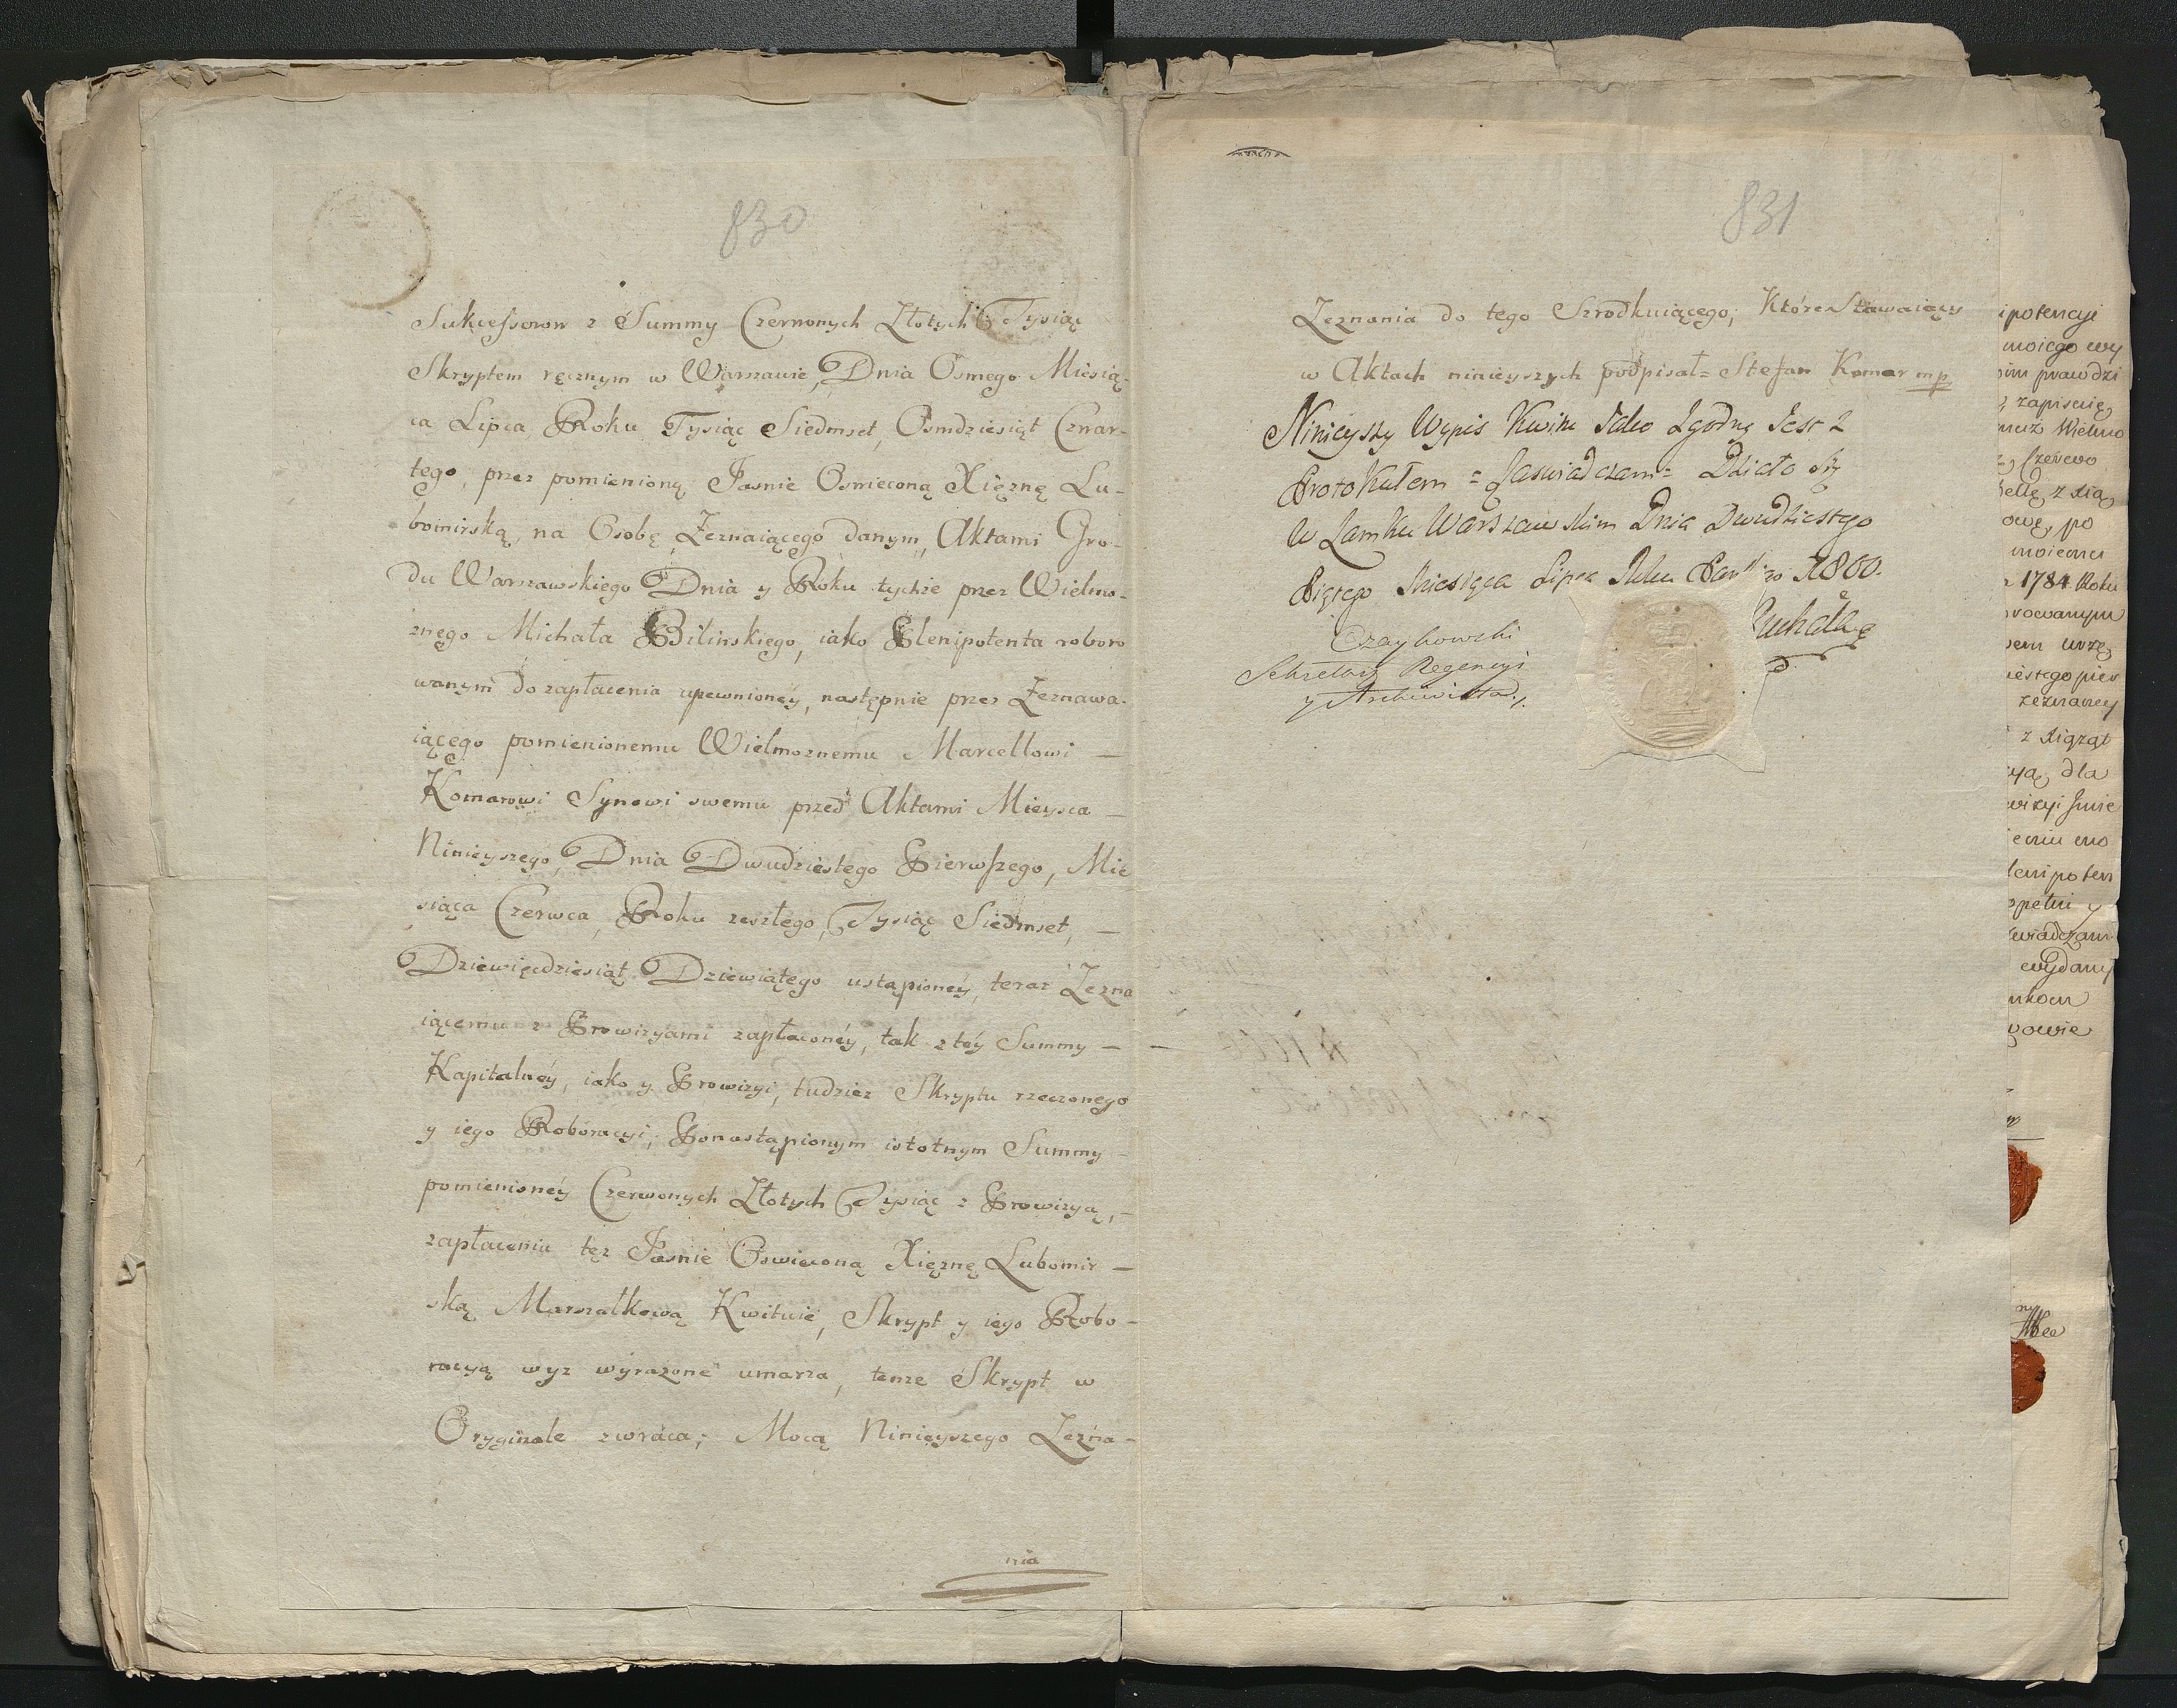 830
Sukcessorow z Summy Czerwonych Złotych Tysiąc
Skryptem ręcznym w Warszawie, Dnia Osmego Miesią-
ca Lipca, Roku Tysiąc Siedmset, Osmdziesiąt Czwar-
tego, przez pomienioną Jasnie Oswieconą Xięznę Lu-
bomirską, na Osobę Zeznaiącego danym, Aktami Gro-
du Warszawskiego Dnia y Roku tychże przez Wielmo-
znego Michała Bilinskiego, iako Plenipotenta roboro
wanym do zapłacenia upewnioney, następnie przez Zeznawa-
iącego pomienionemu Wielmoznemu Marcellowi —
Komarowi Synowi swemu przed Aktami Mieysca —
Ninieyszego, Dnia Dwudziestego Pierwszego, Mie
siąca Czerwca, Roku zeszłego, Tysiąc Siedmset, —
Dziewięcdziesiąt Dziewiątego ustąpioney, teraz Zezna
iącemu z Prowizyami zapłaconéy, tak z téy Summy —
Kapitalnéy, iako y Prowizyi, tudziez Skryptu rzeczonego
y iego Roboracyi; Ponastąpionym istotnym Summy
pomienionéy Czerwonych Złotych Tysiąc z Prowizyą, —
zapłaceniu tęz Jasnie Oswieconą Xięznę Lubomir —
ską Marszałkową Kwituie, Skrypt y iego Robo-
racyą wyz wyrazone umarza, tenze Skrypt w
Oryginale zwraca; Mocą Ninieyszego Zezna-
nia
831
Zeznania do tego Szrodkuiącego; Które Stawaiący
w Aktach ninieyszych podpisał = Stefan Komar mp
Ninieyszy Wypis Kwitu Jako Zgodny Jest Z
Protokułem = Zaswiadczam = Działo Się
W Zamku Warszawskim Dnia Dwudziestego
Piątego Miesiąca Lipca Roku 1800.
Czaykowski
Sekretarz Regencyi
y Archiwista
ipotencyi
moiego wy
im prawdzi
zapiscie
z Xią
po
moiemu
1784 Roku
rowanym
zeznaney
z Xiąząt
dla
lenipoten
y
wydany